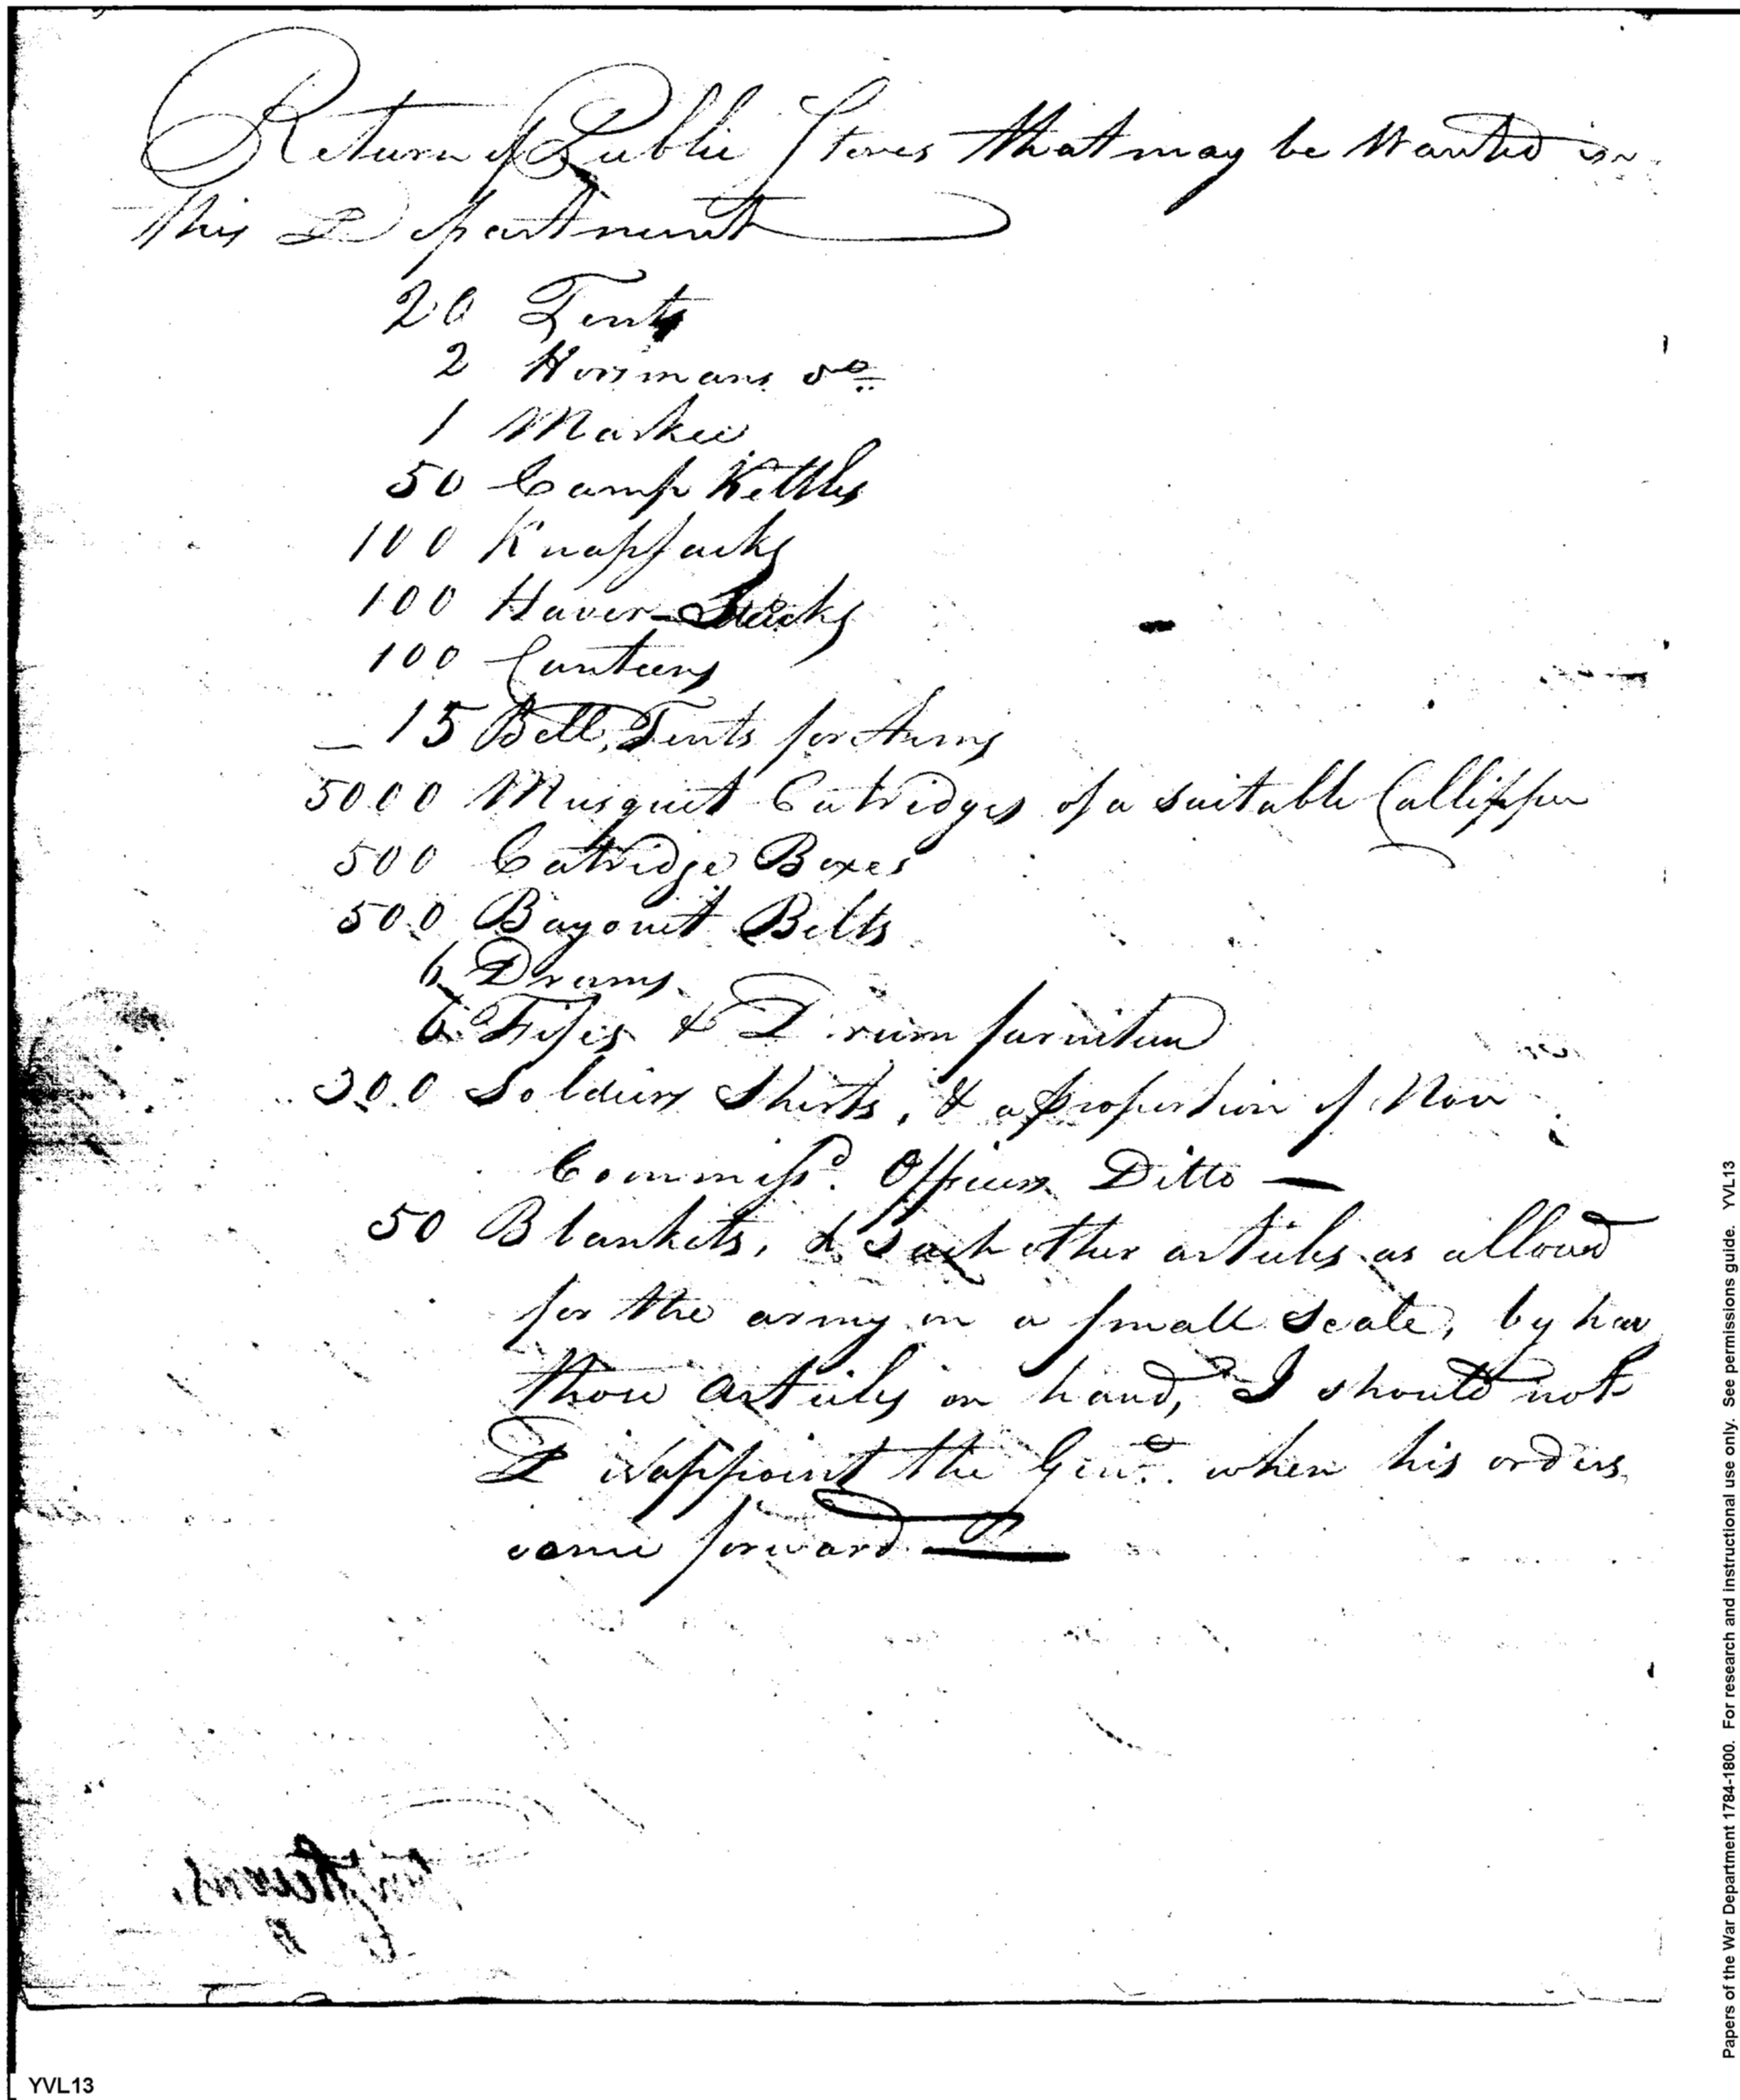 Return of Public Stores that may be Wanted in
this Department
20 Tents
2 Horsmans do
1 Markee
50 Camp Kettles
100 Knapsacks
100 Haver-Sacks
100 Canteens
15 Bell Tents for Arms
5000 Musquet Catridges of a suitable Callipper
500 Catridge Boxes
500 Bayonet Belts
6 Drums
6 Fifes & Drum furniture
300 Soldiers Shirts, & a proportion of Non
Commissd. Officers Ditto —
50 Blankets, & Such other articles as allowed
for the army on a small Scale, by hav
those Articles on hand, I should not
Disappoint the Genl. when his orders
come forward —
Papers of the War Department 1784-1800. For research and instructional use only. See permissions guide. YVL13
YVL13